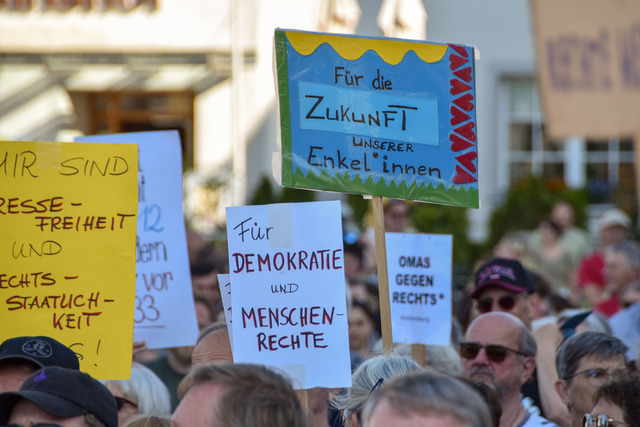 WIR SIND
PRESSE-
FREIHEIT
UND
RECHTS-
STAATLICH-
KEIT
!
12
dern
vor
33
Für
DEMOKRATIE
UND
MENSCHEN-
RECHTE
Für die
ZUKUNFT
UNSERER
Enkel*innen
OMAS
GEGEN
RECHTS*